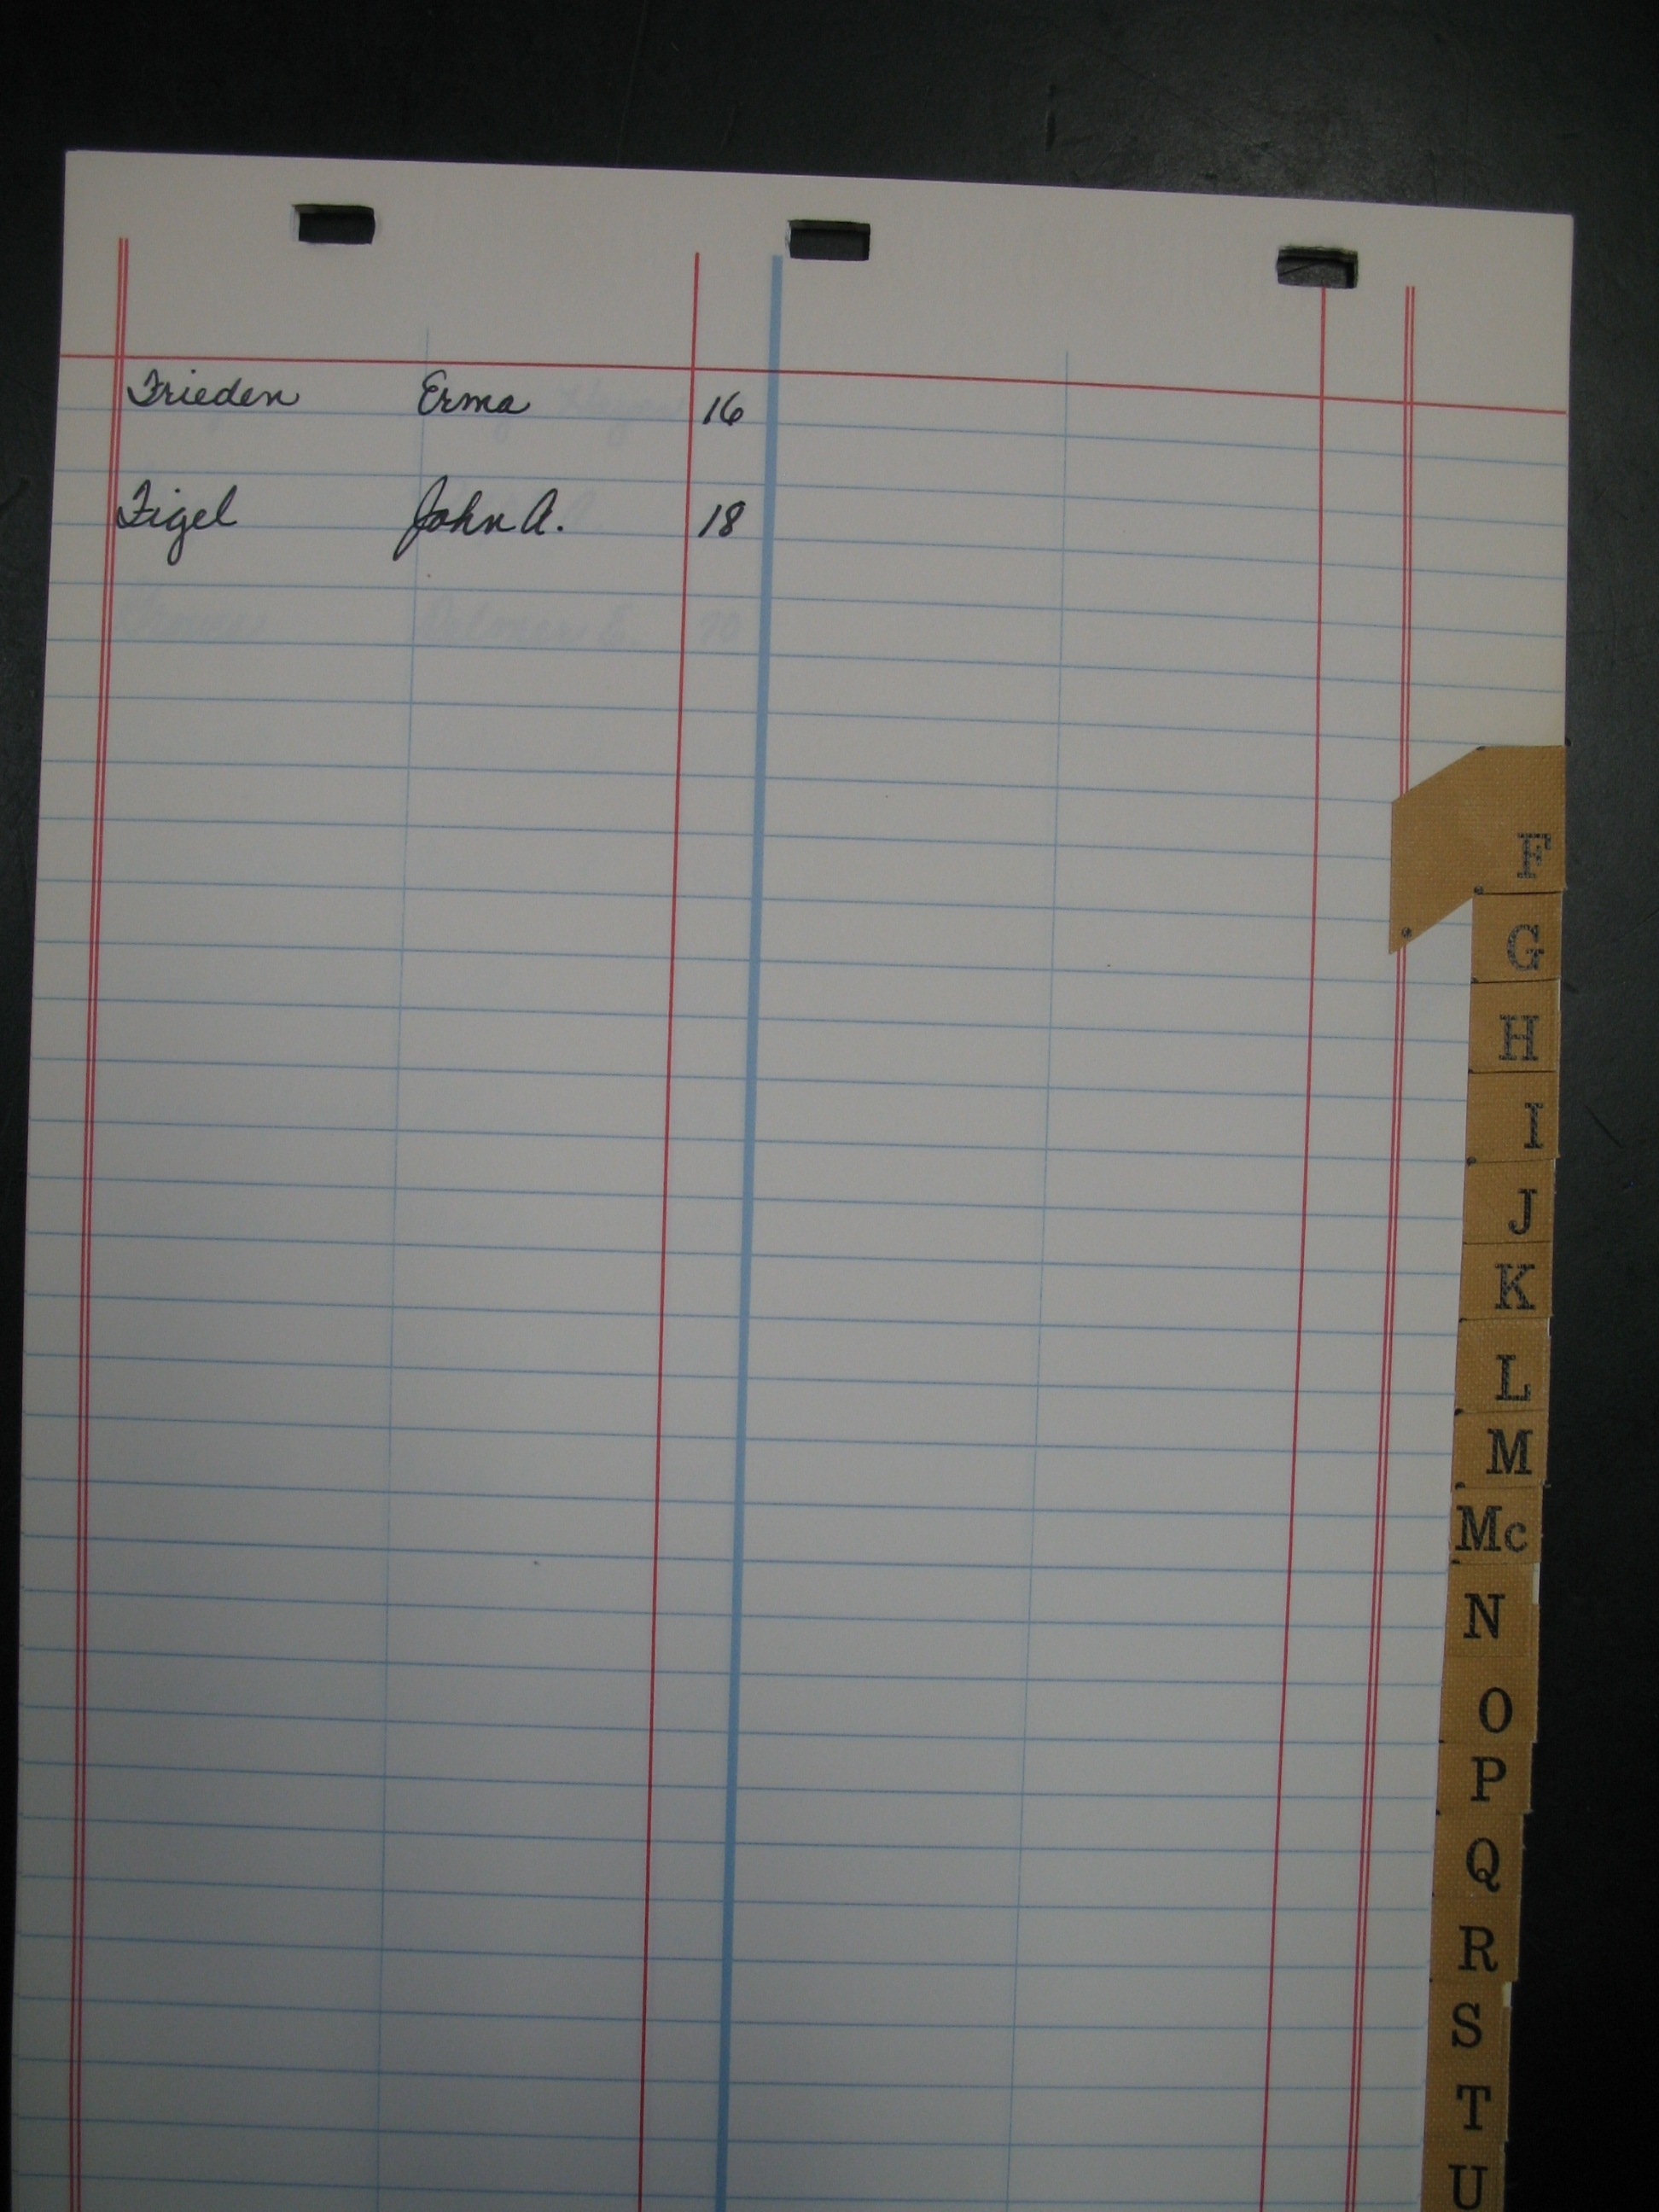 Frieden Erma 16
Figel John A. 18
F
G
H
I
J
K
L
M
Mc
N
O
P
Q
R
S
T
U